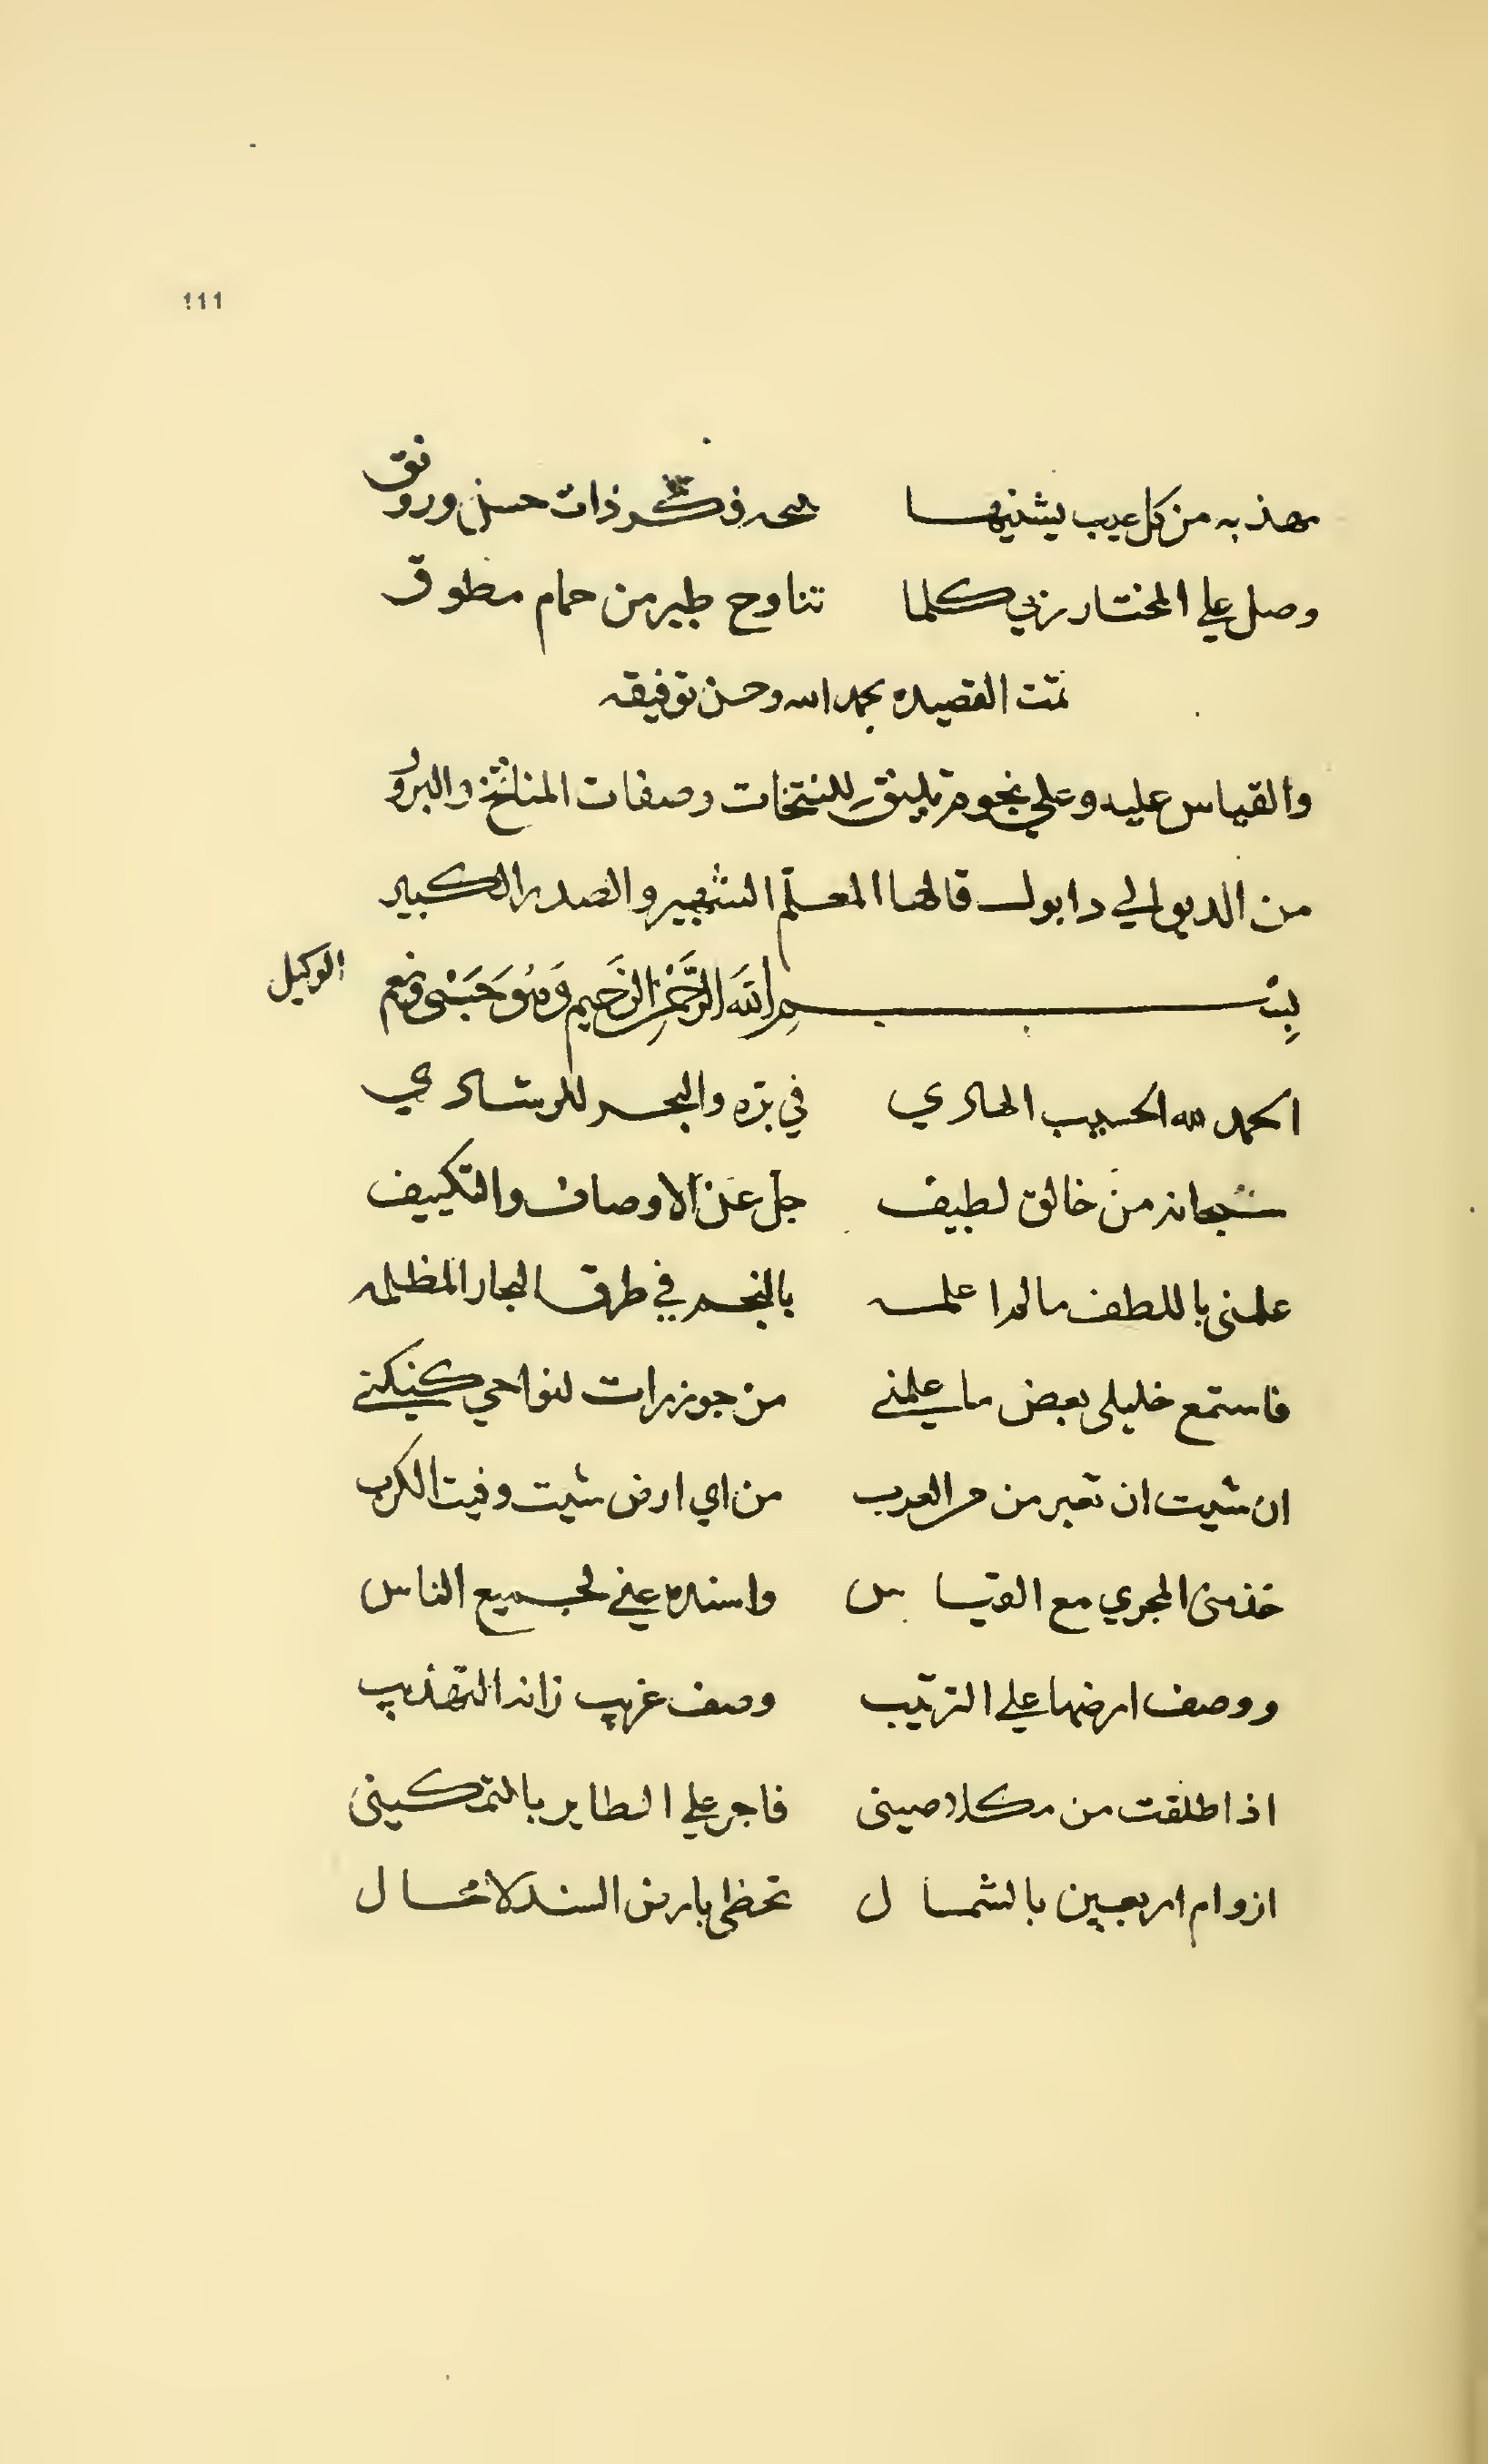 111
مهذبه من كل عيب يشنيها فكر ذات حسن ورونق
وصل علي المختار ربي كلما تناوح طير من حمام مطوق
تمت القصيده بحمد الله وحسن توفيقه
والقياس عليه وعلي نجوم تليق للنتخات وصفات المناتخ والبرور
من الديو الي دابول قالها المعلم الشهير والصدر الكبير
بسم الله الرحمن الرحيم وهو حسبي ونعم الوكيل
الحمد لله الحسيب الهادي في بره والبحر للرشادي
سبحانه من خالق لطيف جل عن الاوصاف والتكييف
علمني باللطف مالم اعلمه بالنجم في طرق البحار المظلمه
فاستمع خليلي بعض ما علمني من جوزرات لنواحي كنكني
ان شيت ان تعبر من بر العرب من اي ارض شيت وفيت الكرب
خذ مني المجري مع القياس واسنده عني لجميع الناس
ووصف ارضها علي الترتيب وصف غريب زانه التهذيب
اذا طلقت من مكلا صيني فاجر علي الطاير بالتمكيني
ازوام اربعين بالشمال تحظي بارض السند لا محال